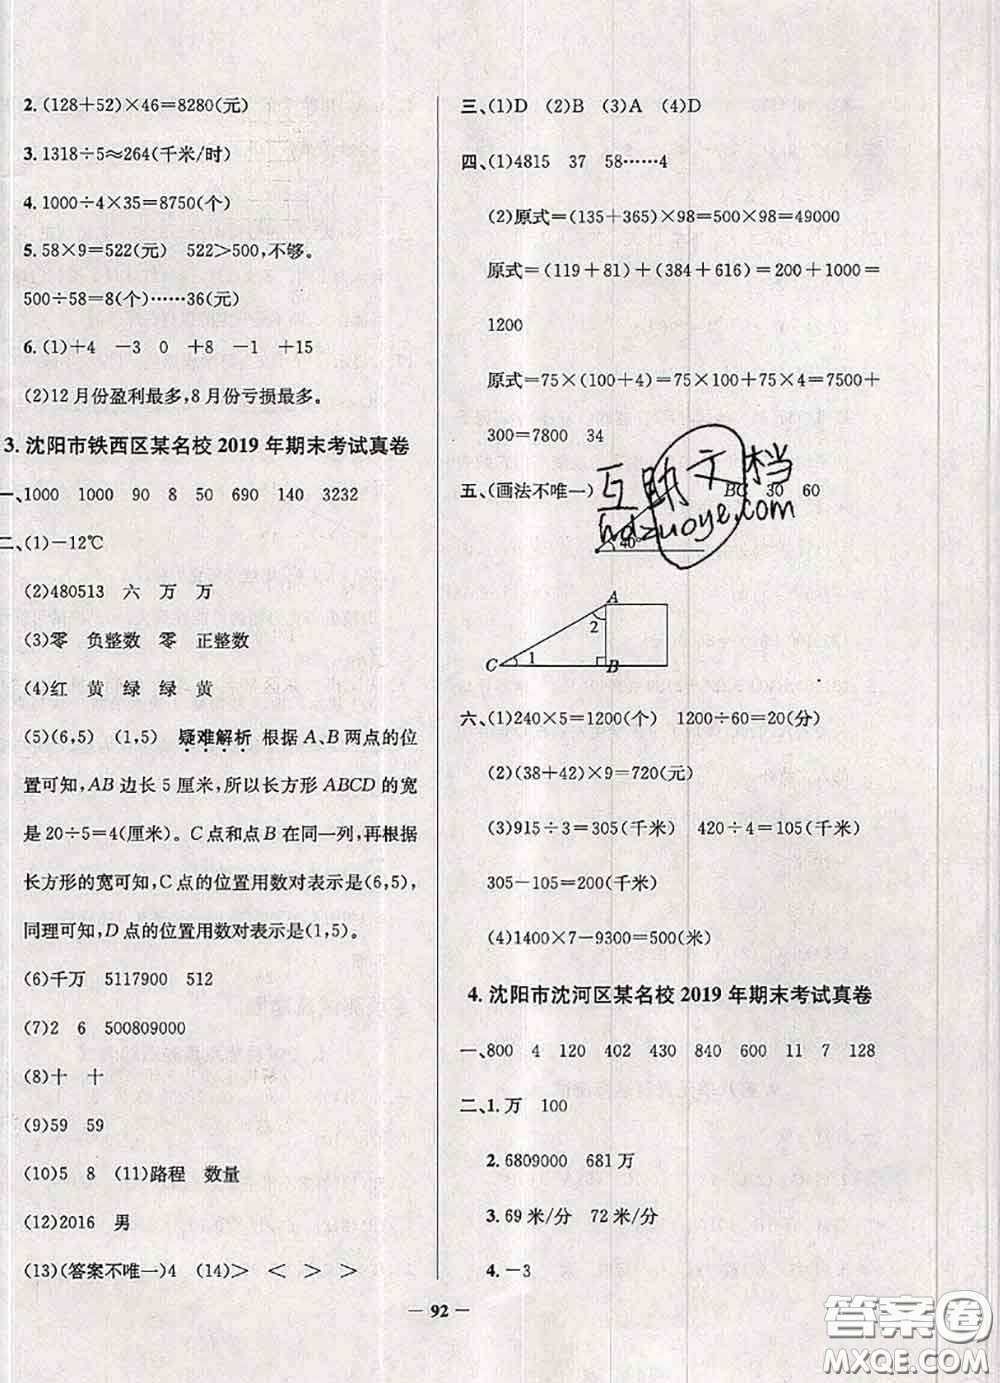 2.(128+52)×46=8280(元)
3.1318÷5≈264(千米/时)
4.1000÷4×35=8750(个)
5.58×9=522(元) 522>500,不够。
500÷58=8(个)……36(元)
6.(1)+4 −3 0 +8 −1 +15
(2)12月份盈利最多,8月份亏损最多。
3.沈阳市铁西区某名校2019年期末考试真卷
一、1000 1000 90 8 50 690 140 3232
二、(1)−12℃
(2)480513 六 万 万
(3)零 负整数 零 正整数
(4)红 黄 绿 绿 黄
(5)(6,5) (1,5) 疑难解析 根据A、B两点的位
置可知,AB边长5厘米,所以长方形ABCD的宽
是20÷5=4(厘米)。C点和点B在同一列,再根据
长方形的宽可知,C点的位置用数对表示是(6,5),
同理可知,D点的位置用数对表示是(1,5)。
(6)千万 5117900 512
(7)2 6 500809000
(8)十 十
(9)59 59
(10)5 8 (11)路程 数量
(12)2016 男
(13)(答案不唯一)4 (14)> < > >
三、(1)D (2)B (3)A (4)D
四、(1)4815 37 58……4
(2)原式=(135+365)×98=500×98=49000
原式=(119+81)+(384+616)=200+1000=
1200
原式=75×(100+4)=75×100+75×4=7500+
300=7800 34
五、(画法不唯一) BC 30 60
40°
互助文档
hdzuoye.com
A
2
C 1 B
六、(1)240×5=1200(个) 1200÷60=20(分)
(2)(38+42)×9=720(元)
(3)915÷3=305(千米) 420÷4=105(千米)
305−105=200(千米)
(4)1400×7−9300=500(米)
4.沈阳市沈河区某名校2019年期末考试真卷
一、800 4 120 402 430 840 600 11 7 128
二、1.万 100
2.6809000 681万
3.69米/分 72米/分
4.−3
— 92 —
答案圈
MXQE.COM